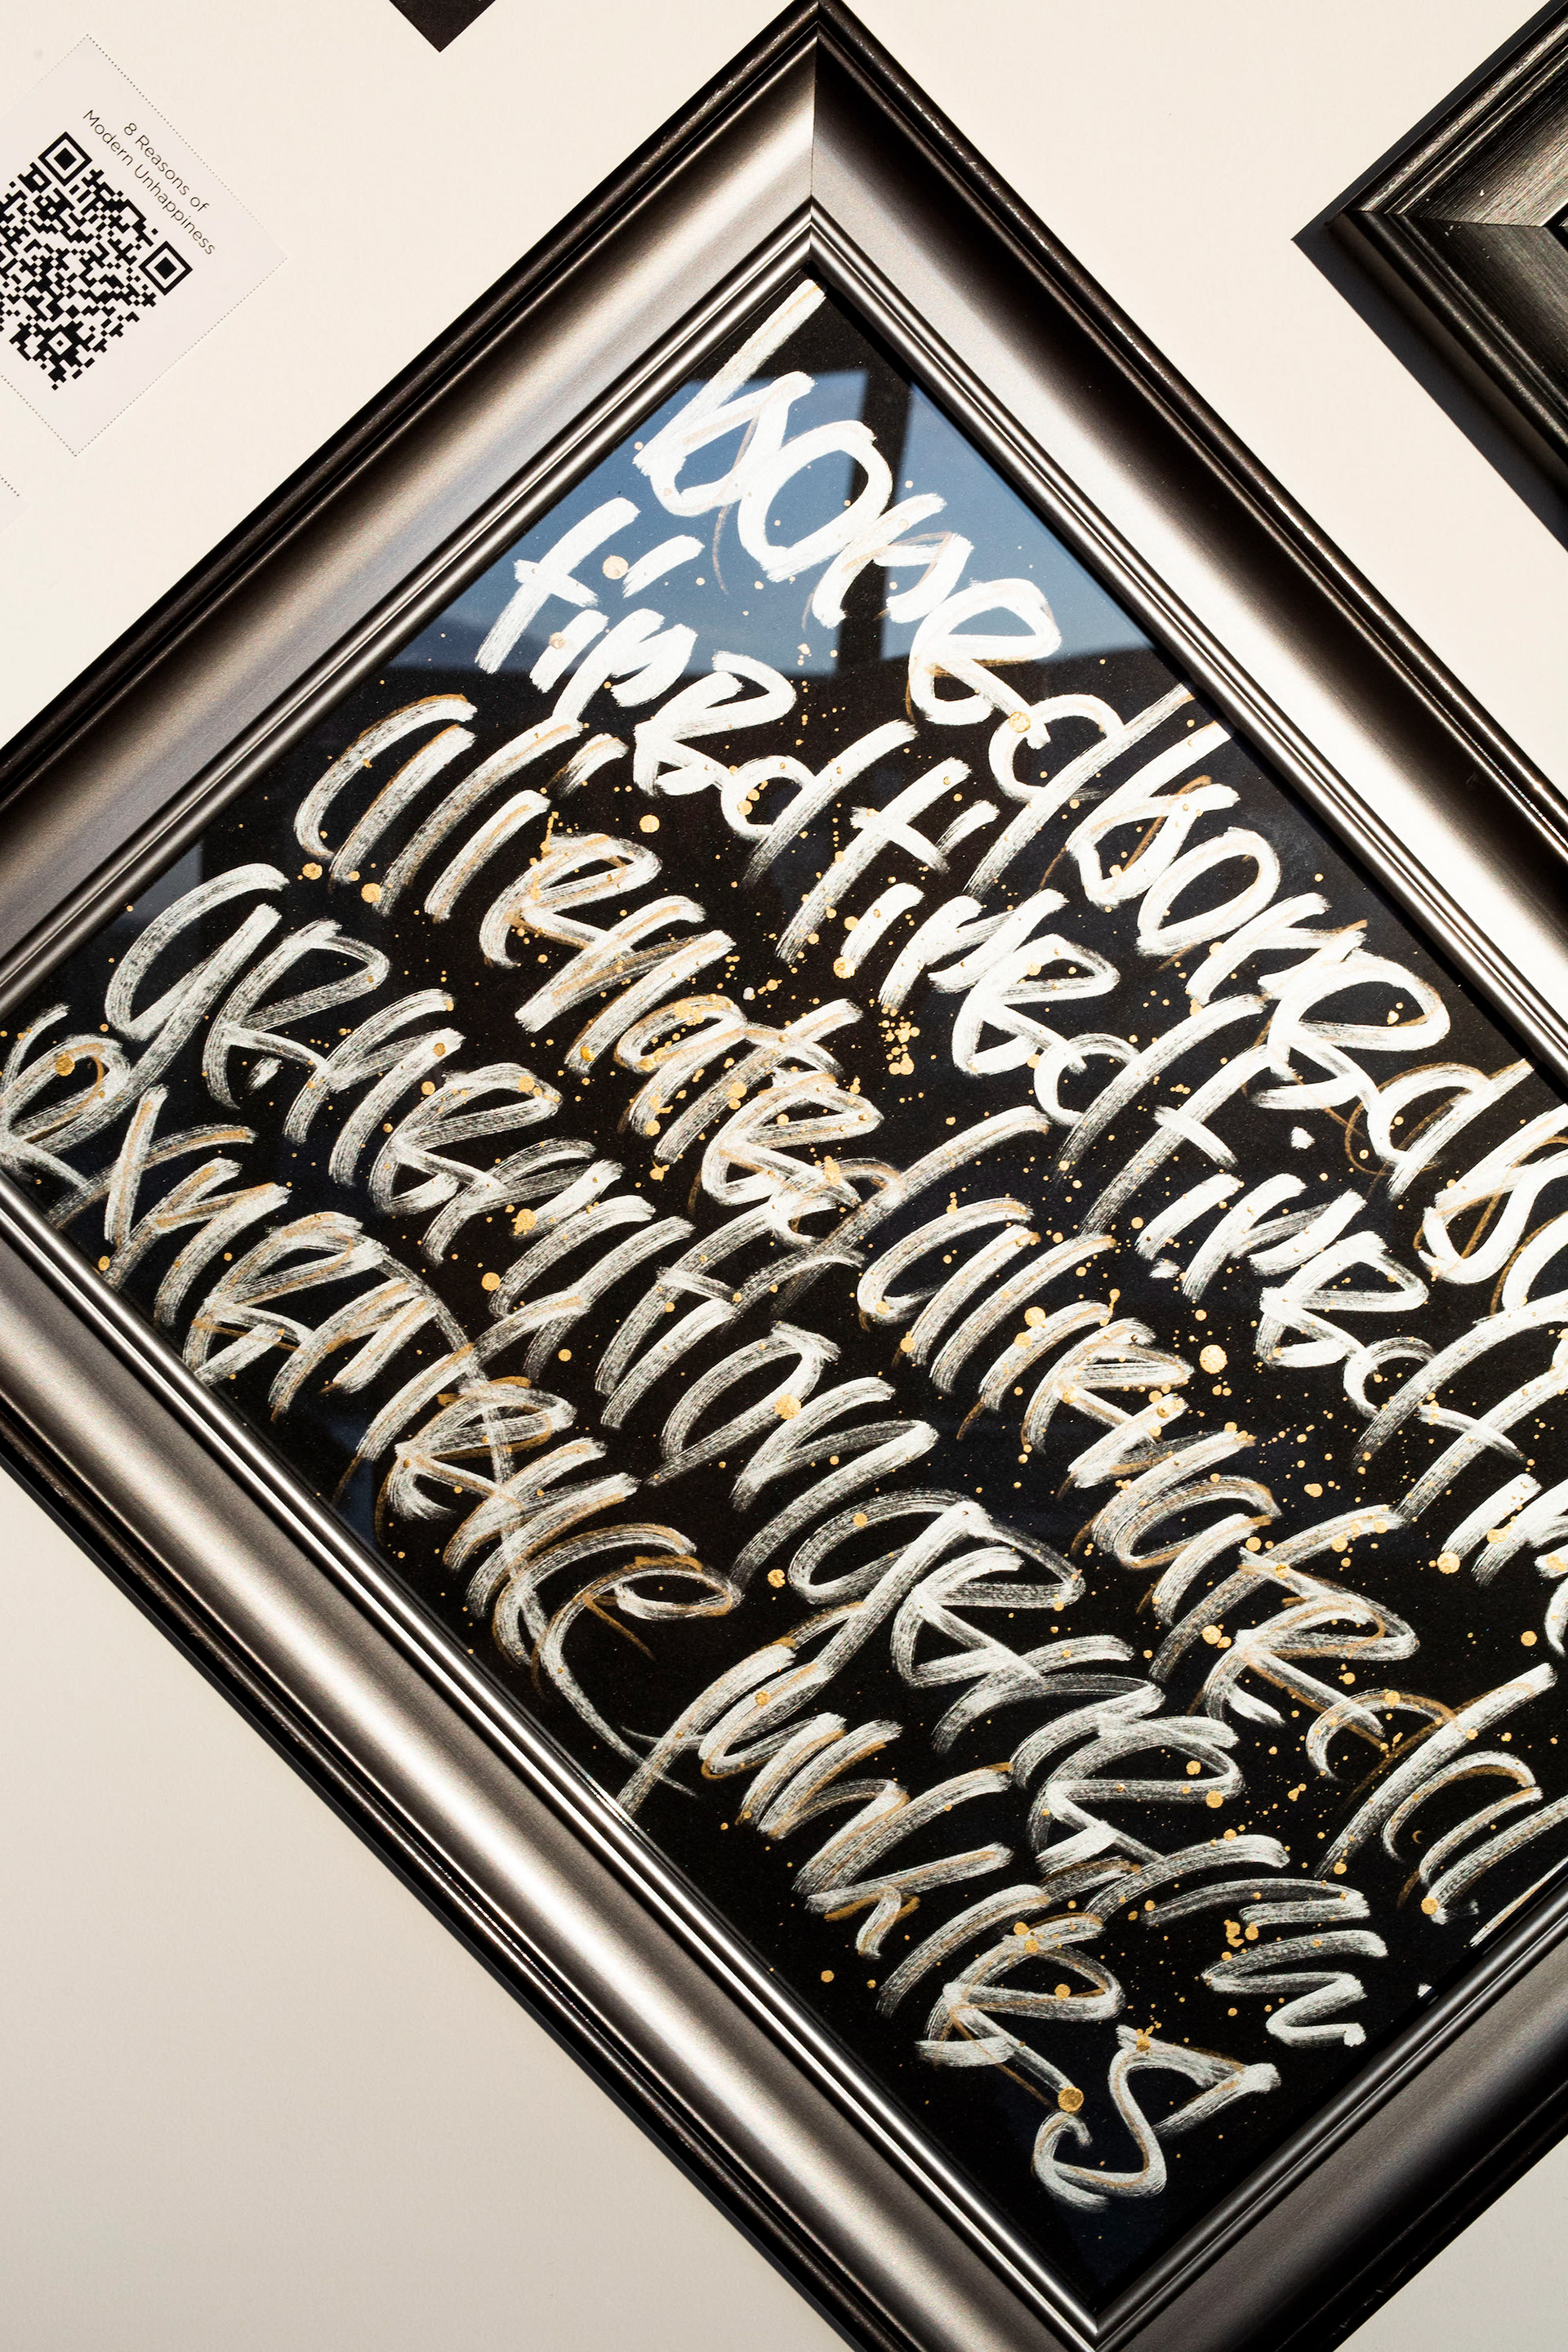 8 Reasons of
Modern Unhappiness
bored bored bo
tired tired tired ti
alienated alienated
generation gener
experience junkies